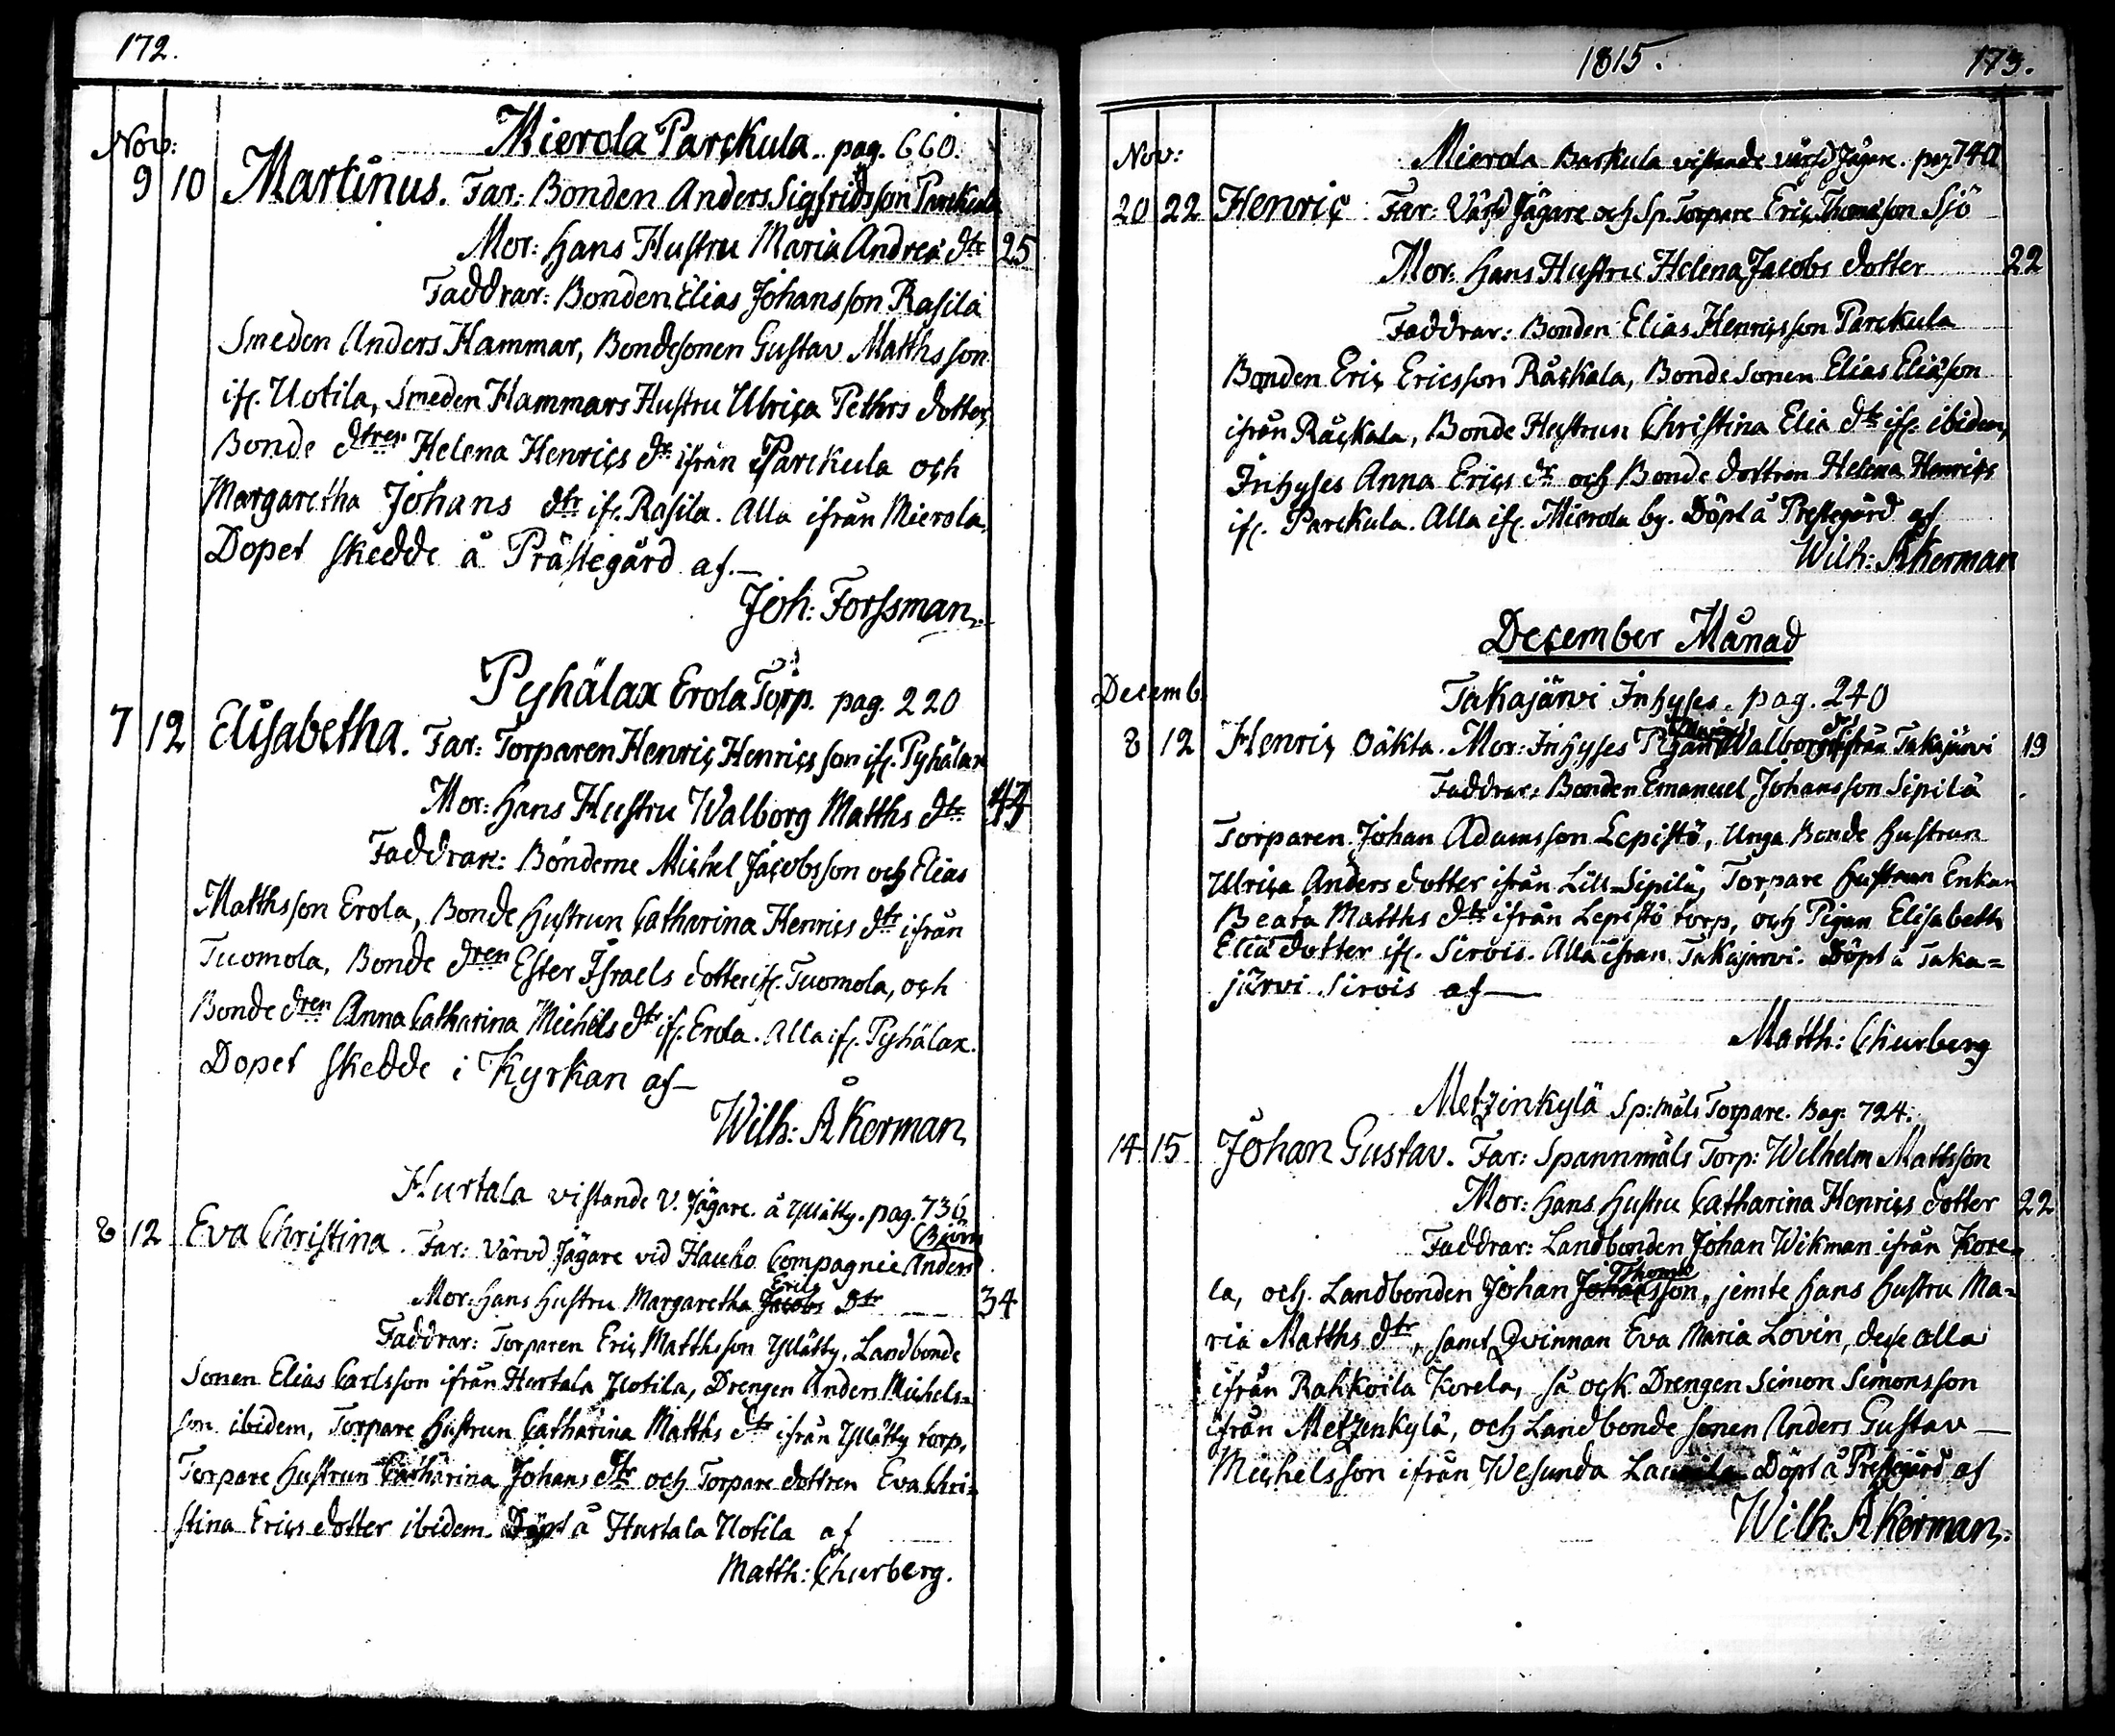 172.
Nov:
Mierola Parckula. pag. 660.
9 10 Martinus. Far: Bonden Anders Sigfridsson Parckula
Mor: hans Hustru Maria Andreæ dtr 25
Faddrar: Bonden Elias Johansson Rasila
Smeden Anders Hammar, Bondesonen Gustav Matthsson
ifr. Uotila, Smeden Hammars Hustru Ulrica Pethrs dotter,
Bonde dtren Helena Henrics dr ifrån Parckula och
Margaretha Johans dtr ifr. Rasila. Alla ifrån Mierola,
Dopet skedde å Prästegård af.—
Joh: Forssman.
Pyhälax Erola Torp. pag. 220
7 12 Elisabetha. Far: Torparen Henric Henricsson ifr. Pyhälax
Mor: hans Hustru Walborg Matths dtr 44
Faddrar: Bönderne Michel Jacobsson och Elias
Matthsson Erola, Bonde hustrun Catharina Henrics dtr ifrån
Tuomola, Bonde dren Ester Israels dotter ifr. Tuomola, och
Bonde dren Anna Catharina Michels dtr ifr. Erola. Alla ifr. Pyhälax.
Dopet skedde i Kyrkan af—
Wilh: Åkerman
Hurtala vistande V. Jägare å Mätty. pag. 736
8 12 Eva Christina. Far: Värvd Jägare vid Hauho Compagnie Anders
Björn
Mor: hans hustru Margaretha Jacobs dtr 34
Erics
Faddrar: Torparen Eric Matthsson Mätty, Landbonde
Sonen Elias Carlsson ifrån Hurtala Uotila, Drengen Anders Michels-
son ibidem, Torpare hustrun Catharina Matths dtr ifrån Mätty torp,
Torpare hustrun Catharina Johans dtr och Torpare dottren Eva Chri-
stina Erics dotter ibidem. Döpt å Hurtala Uotila af
Matth: Churberg.
1815. 173.
Nov:
Mierola Parkula vistande värfd Jägare. pag 740
20 22 Henric Far: Värfd Jägare och Sp. Torpare Eric Thomasson Sjö
Mor: hans Hustru Helena Jacobs dotter 22
Faddrar: Bonden Elias Henricsson Parckula
Bonden Eric Ericsson Råckala, Bonde Sonen Elias Eliæson
ifrån Råckala, Bonde Hustrun Christina Elia dtr ifr. ibidem,
Inhyses Anna Erics dr och Bonde dottren Helena Henrics
ifr. Parckula. Alla ifr. Mierola by. Döpt å Prestegård af
Wilh: Åkerman
December Månad
Decemb.
Takajärvi Inhyses. pag. 240
8 12 Henric Oäkta. Mor: Inhyses Pigan Walborg ifrån Takajärvi 19
Faddrar: Bonden Emanuel Johansson Sipilä
Torparen Johan Adamsson Lepistö, Unga Bonde hustrun
Ulrica Anders dotter ifrån Lill Sipilä, Torpare hustrun Enkan
Beata Matths dtr ifrån Lepistö torp, och Pigan Elisabeth
Elia dotter ifr. Sirvis. Alla ifrån Takajärvi. Döpt å Taka=
järvi Sirvis af—
Matth: Churberg
Metzinkylä Sp:måls Torpare. Pag: 724.
14 15 Johan Gustav. Far: Spannmåls Torp: Wilhelm Mattsson
Mor: hans hustru Catharina Henrics dotter 22
Faddrar: Landbonden Johan Wikman ifrån Kore=
la, och Landbonden Johan Johansson, jemte hans hustru Ma=
Thomæ
ria Matths dtr, samt Qvinnan Eva Maria Lovin, desse alla
ifrån Rahkoila Korela, så ock Drengen Simon Simonsson
ifrån Metzenkylä, och Landbonde sonen Anders Gustav—
Michelsson ifrån Wesunda Döpt å Prestegård af
Wilh: Åkerman.